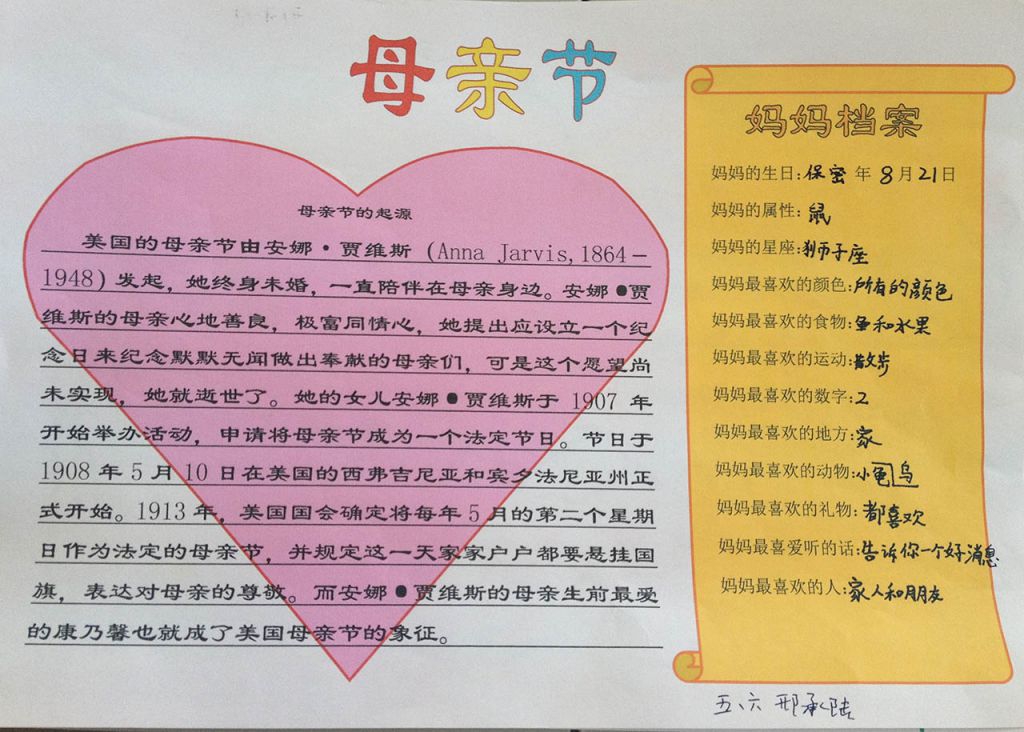 母亲节
母亲节的起源
美国的母亲节由安娜·贾维斯（Anna Jarvis,1864－
1948）发起，她终身未婚，一直陪伴在母亲身边。安娜●贾
维斯的母亲心地善良，极富同情心，她提出应设立一个纪
念日来纪念默默无闻做出奉献的母亲们，可是这个愿望尚
未实现，她就逝世了。她的女儿安娜●贾维斯于 1907 年
开始举办活动，申请将母亲节成为一个法定节日。节日于
1908 年 5 月 10 日在美国的西弗吉尼亚和宾夕法尼亚州正
式开始。1913 年，美国国会确定将每年 5 月的第二个星期
日作为法定的母亲节，并规定这一天家家户户都要悬挂国
旗，表达对母亲的尊敬。而安娜●贾维斯的母亲生前最爱
的康乃馨也就成了美国母亲节的象征。
妈妈档案
妈妈的生日:保密 年 8 月 21 日
妈妈的属性:鼠
妈妈的星座:狮子座
妈妈最喜欢的颜色:所有的颜色
妈妈最喜欢的食物:鱼和水果
妈妈最喜欢的运动:散步
妈妈最喜欢的数字:2
妈妈最喜欢的地方:家
妈妈最喜欢的动物:小龟 鸟
妈妈最喜欢的礼物:都喜欢
妈妈最喜爱听的话:告诉你一个好消息
妈妈最喜欢的人:家人和朋友
五、六 邢承陆